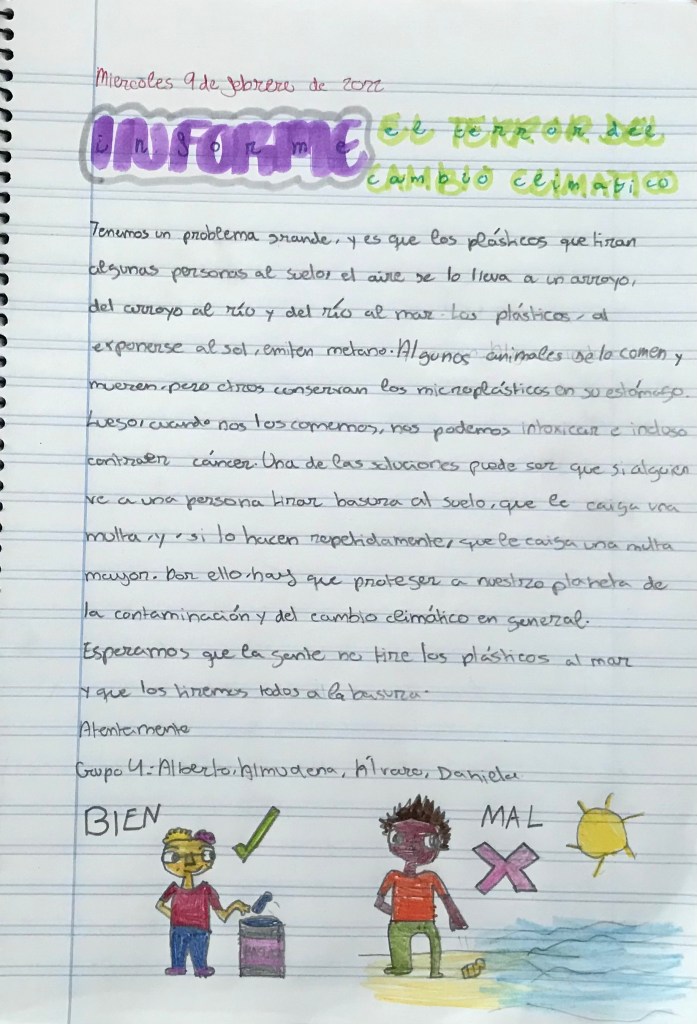 Miercoles 9 de febrero de 2022
INFORME EL TERROR DEL
CAMBIO CLIMATICO
Tenemos un problema grande, y es que los plásticos que tiran
algunas personas al suelo, el aire se lo lleva a un arroyo,
del arroyo al río y del río al mar. Los plásticos, al
exponerse al sol, emiten metano. Algunos animales se lo comen y
mueren, pero otros conservan los microplásticos en su estómago.
Luego, cuando nos los comemos, nos podemos intoxicar e incluso
contraer cáncer. Una de las soluciones puede ser que si alguien
ve a una persona tirar basura al suelo, que le caiga una
multa, y, si lo hacen repetidamente, que le caiga una multa
mayor. Por ello, hay que proteger a nuestro planeta de
la contaminación y del cambio climático en general.
Esperamos que la gente no tire los plásticos al mar
y que los tiremos todos a la basura.
Atentamente
Grupo 4: Alberto, Almudena, Álvaro, Daniela
BIEN MAL